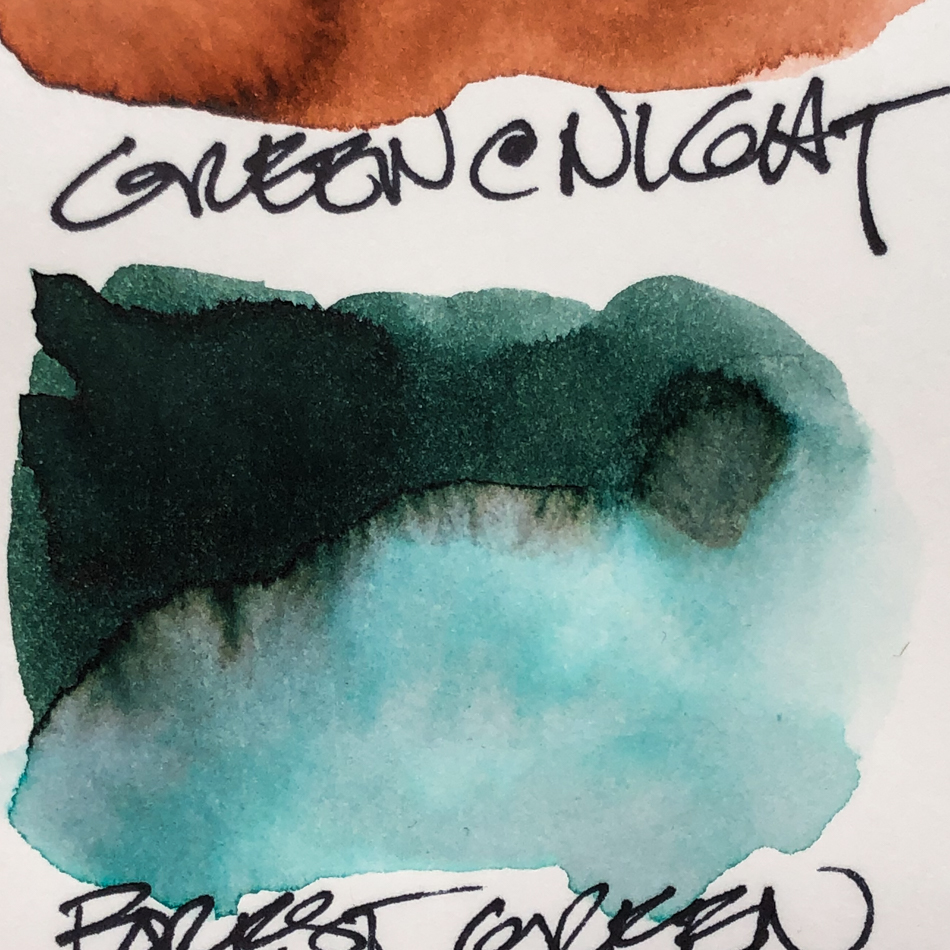 GREEN @ NIGHT
FOREST GREEN